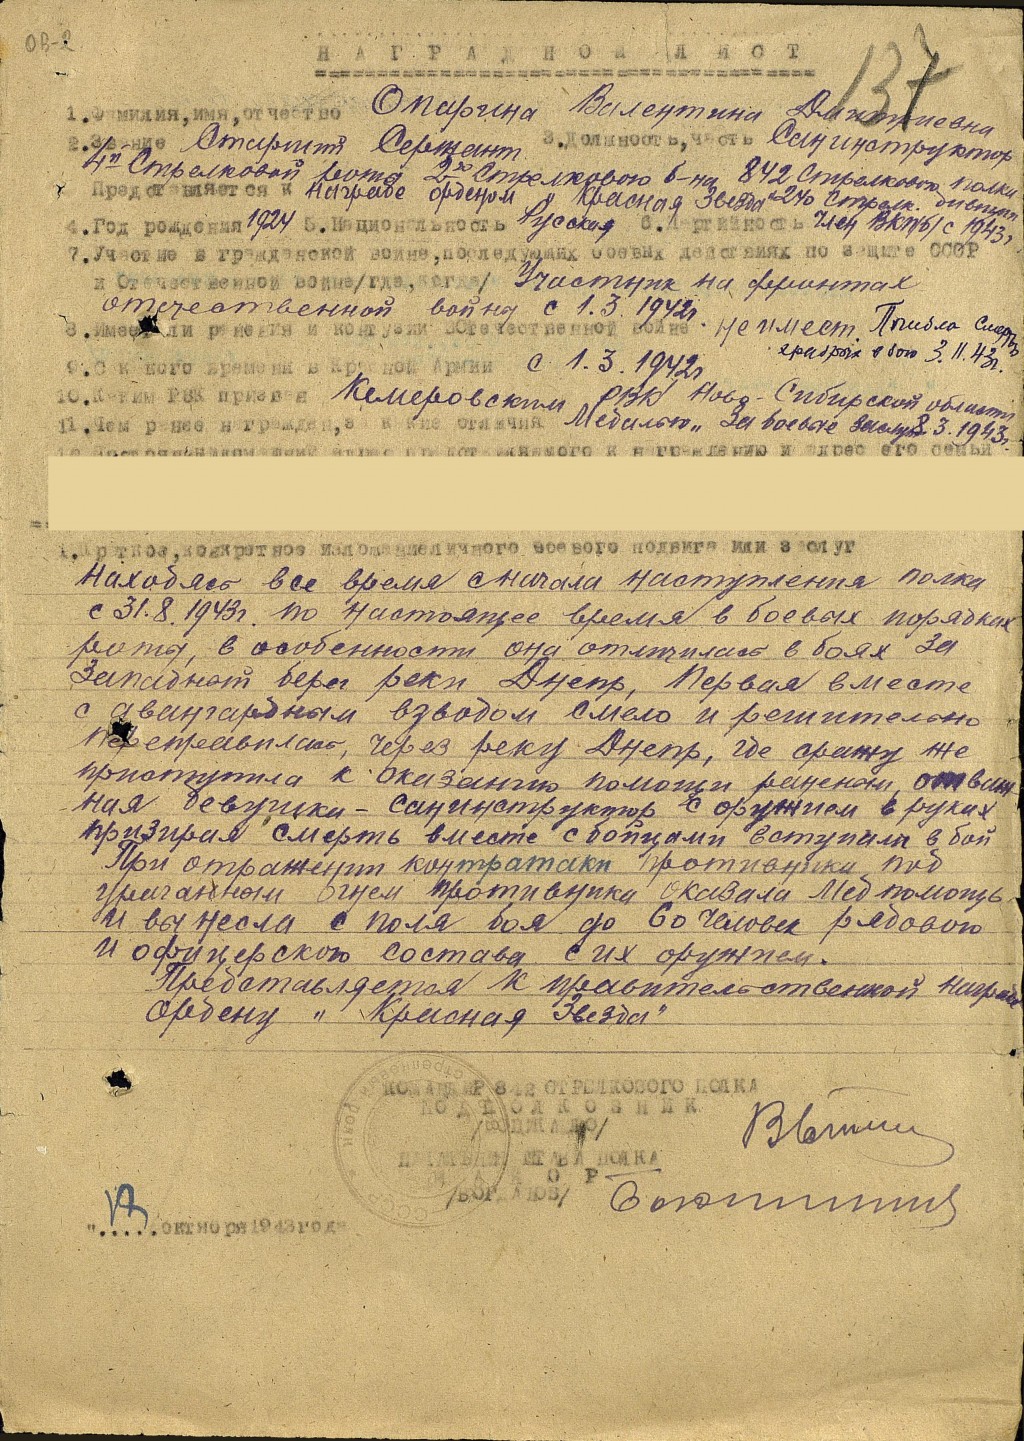 ОВ-2
137
НАГРАДНОЙ ЛИСТ
1. Фамилия, имя, отчество Опарина Валентина Дмитриевна
2. Звание Старший Сержант 3. Должность, часть Санинструктор
4й Стрелковой роты 2го Стрелкового б-на 842 Стрелкового полка
Представляется к Награде орденом "Красная Звезда" 240 Стрелк. дивизии
4. Год рождения 1924 5. Национальность Русская 6. Партийность Член ВКП/б/ с 1943г
7. Участие в гражданской войне, последующих боевых действиях по защите СССР
и Отечественной войне/где, когда/ Участник на фронтах
отечественной войны с 1.3.1942г.
8. Имеет ли ранения и контузии в Отечественной войне не имеет. Погибла смертью
храбрых в бою 3.11.43г.
9. С какого времени в Красной Армии с 1.3.1942г
10. Каким РВК призван Кемеровским РВК Ново-Сибирской области
11. Чем ранее награжден, за какие отличия Медалью "За боевые заслуги" 3.1943г.
1. Краткое, конкретное изложение личного боевого подвига или заслуг
Находясь все время с начала наступления полка
с 31.8.1943г. по настоящее время в боевых порядках
роты, в особенности она отличилась в боях за
Западный берег реки Днепр, Первая вместе
с авангардным взводом смело и решительно
переправилась, через реку Днепр, где сражу же
приступила к оказанию помощи раненым, отваж
ная девушка - санинструктор с оружием в руках
призирая смерть вместе с бойцами вступали в бой
При отражении контратаки противника под
ураганным огнем противника оказала Медпомощь
и вынесла с поля боя до 60 человек рядового
и офицерского состава с их оружием.
Представляется к правительственной награде
ордену "Красная Звезда"
КОМАНДИР 842 СТРЕЛКОВОГО ПОЛКА
ПОДПОЛКОВНИК
НАЧАЛЬНИК ШТАБА ПОЛКА
МАЙОР
"....." октября 1943 года